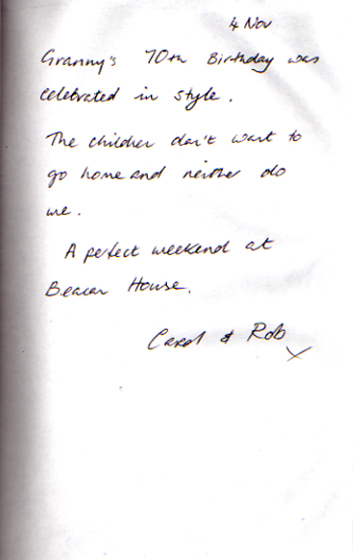 4 Nov
Granny's 70th Birthday was
celebrated in style.
The children don't want to
go home and neither do
we.
A perfect weekend at
Beacon House.
Carol & Rob
X